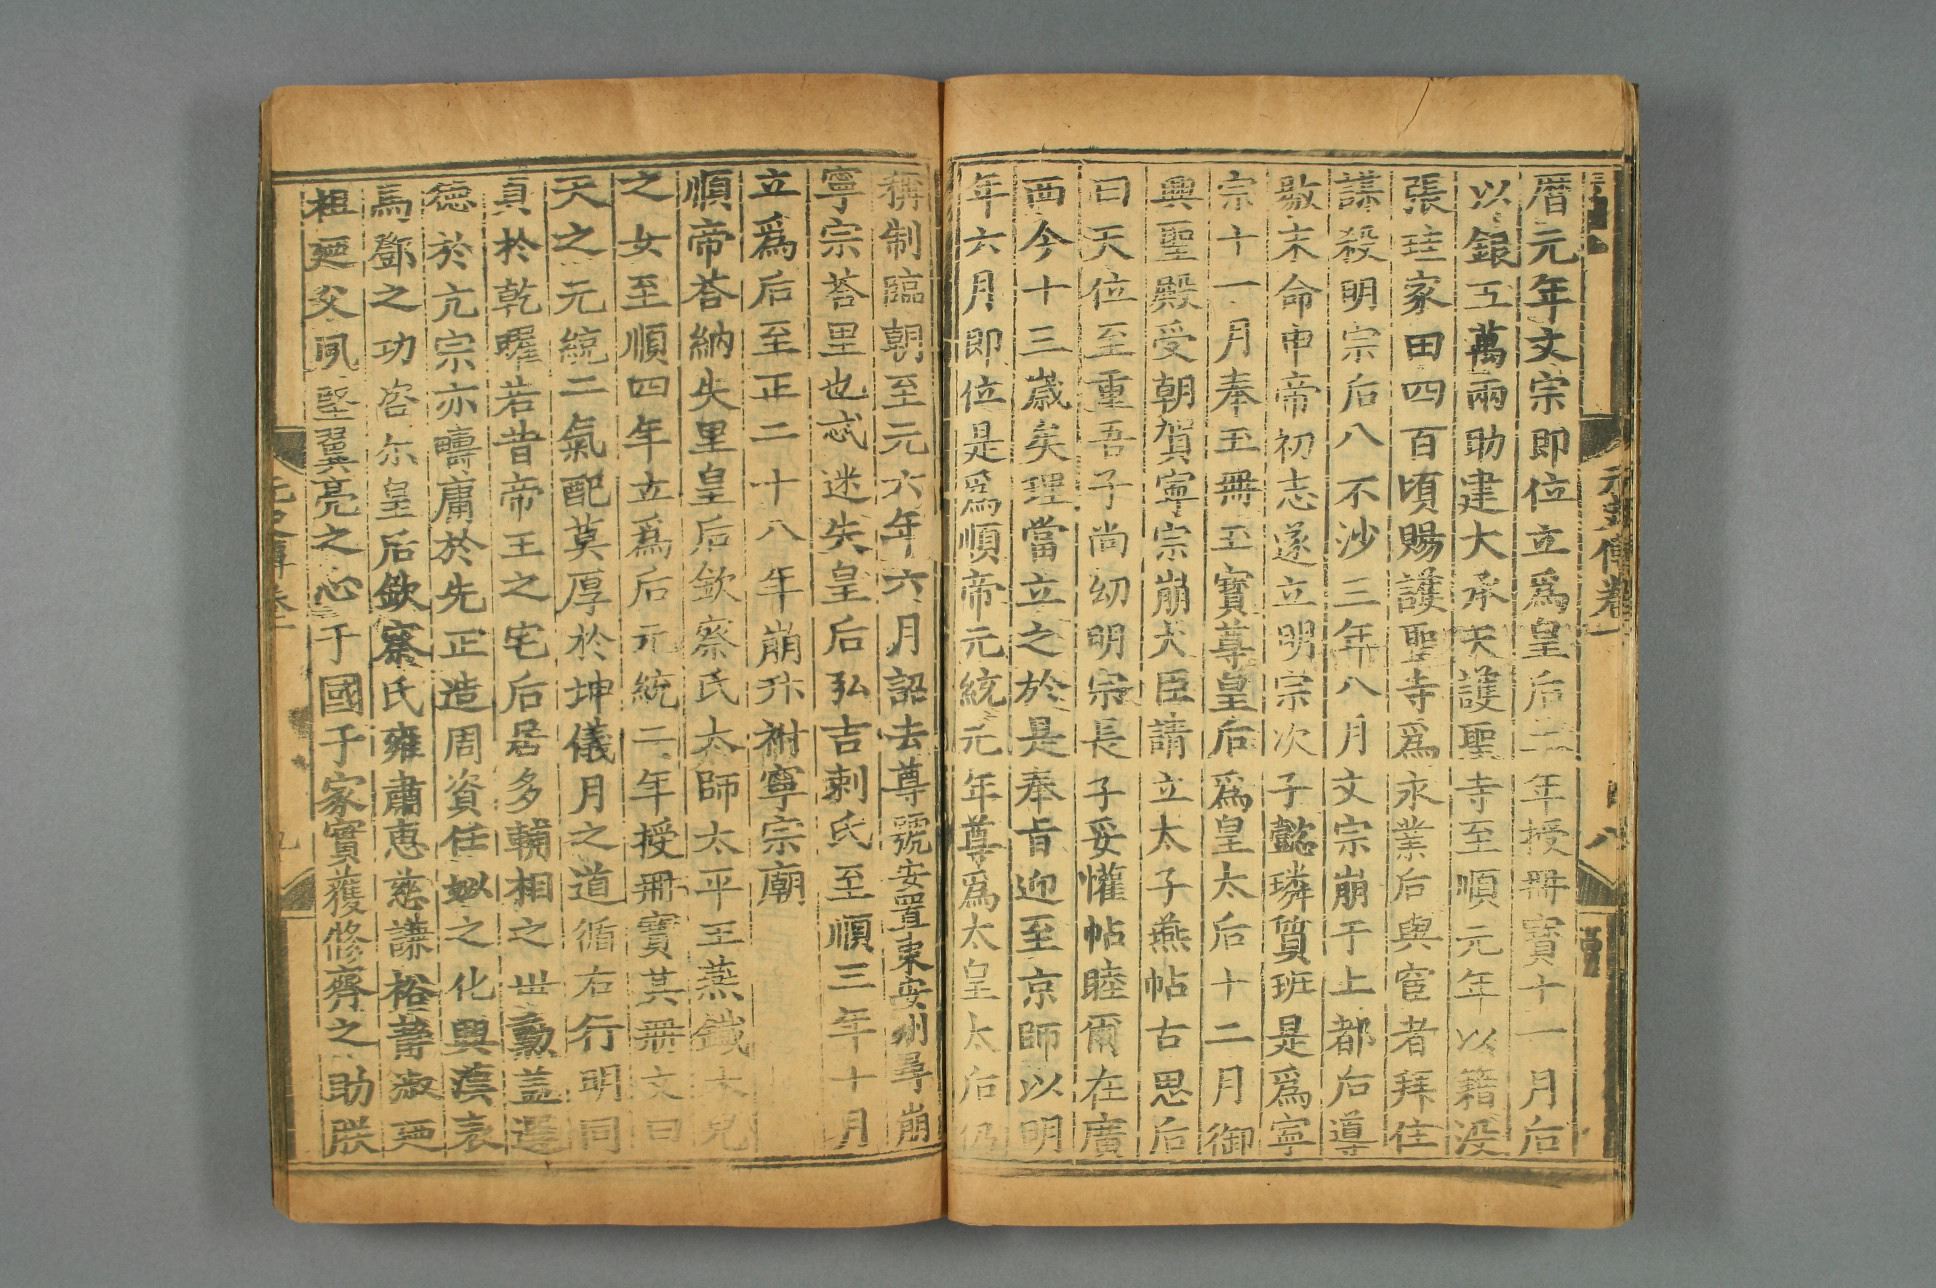 元史傳卷一
八
曆元年文宗即位立爲皇后二年授冊寶十一月后
以銀五萬兩助建大承天護聖寺至順元年以籍没
張珪家田四百頃賜護聖寺爲永業后與宦者拜住
謀殺明宗后八不沙三年八月文宗崩于上都后導
敭末命申帝初志遂立明宗次子懿璘質班是爲寧
宗十一月奉玉冊玉寶尊皇后爲皇太后十二月御
興聖殿受朝賀寧宗崩大臣請立太子燕帖古思后
曰天位至重吾子尚幼明宗長子妥懽帖睦爾在廣
西今十三歲矣理當立之於是奉旨迎至京師以明
年六月即位是爲順帝元統元年尊爲太皇太后仍
稱制臨朝至元六年六月詔去尊號安置東安州尋崩
寧宗荅里也忒迷失皇后弘吉剌氏至順三年十月
立爲后至正二十八年崩升祔寧宗廟
順帝荅納失里皇后欽察氏太師太平王燕鐵木兒
之女至順四年立爲后元統二年授冊寶其冊文曰
天之元統二氣配莫厚於坤儀月之道循右行明同
貞於乾曜若昔帝王之宅后居多輔相之世勳盖選
德於亢宗亦疇庸於先正造周資任姒之化興漢表
馬鄧之功咨尔皇后欽察氏雍肅惠慈謙裕静淑廼
祖廼父夙堅翼亮之心于國于家實獲修齊之助朕